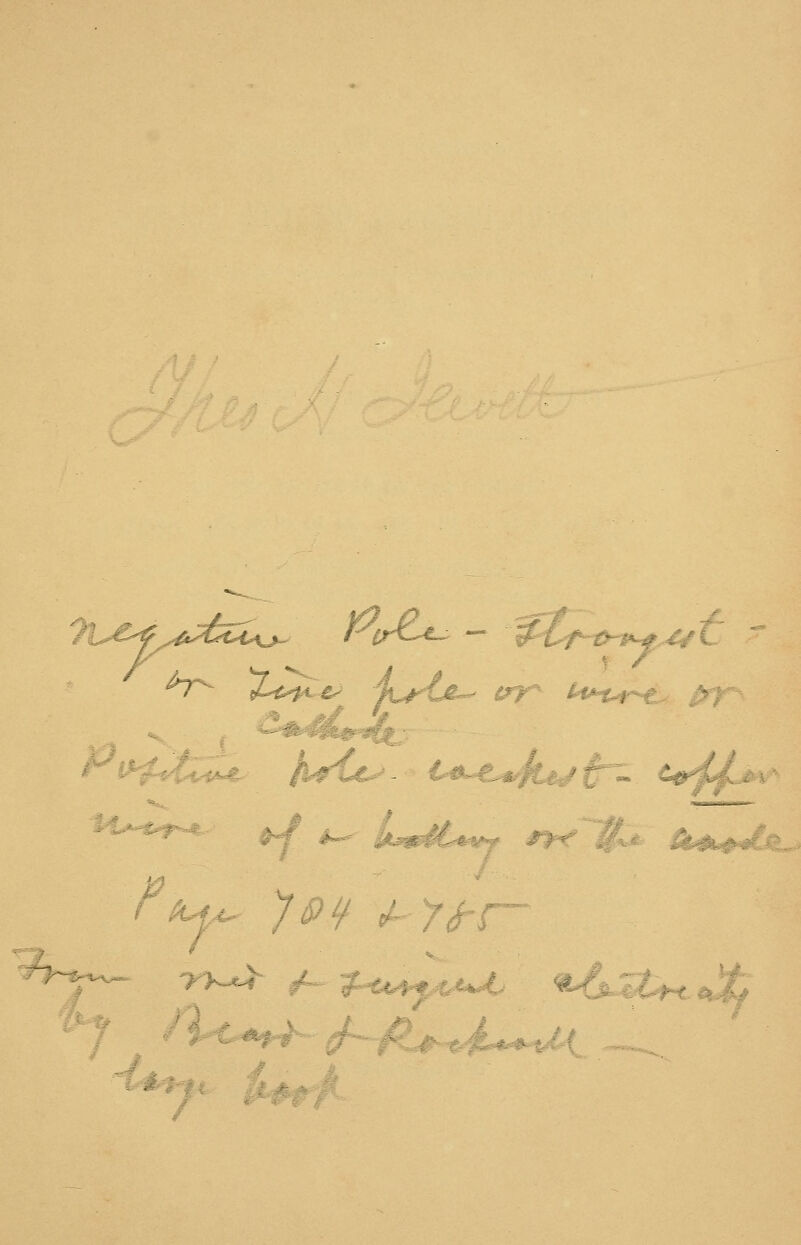 Theo H Jewett
negative Pole - strongest -
or Zinc pole or wire or
Cathode
Positive pole - weakest - copper
wire of a battery or the anode
Page 784 & 785
From med & surgical electricity
by Beard & Rockwell —
large book